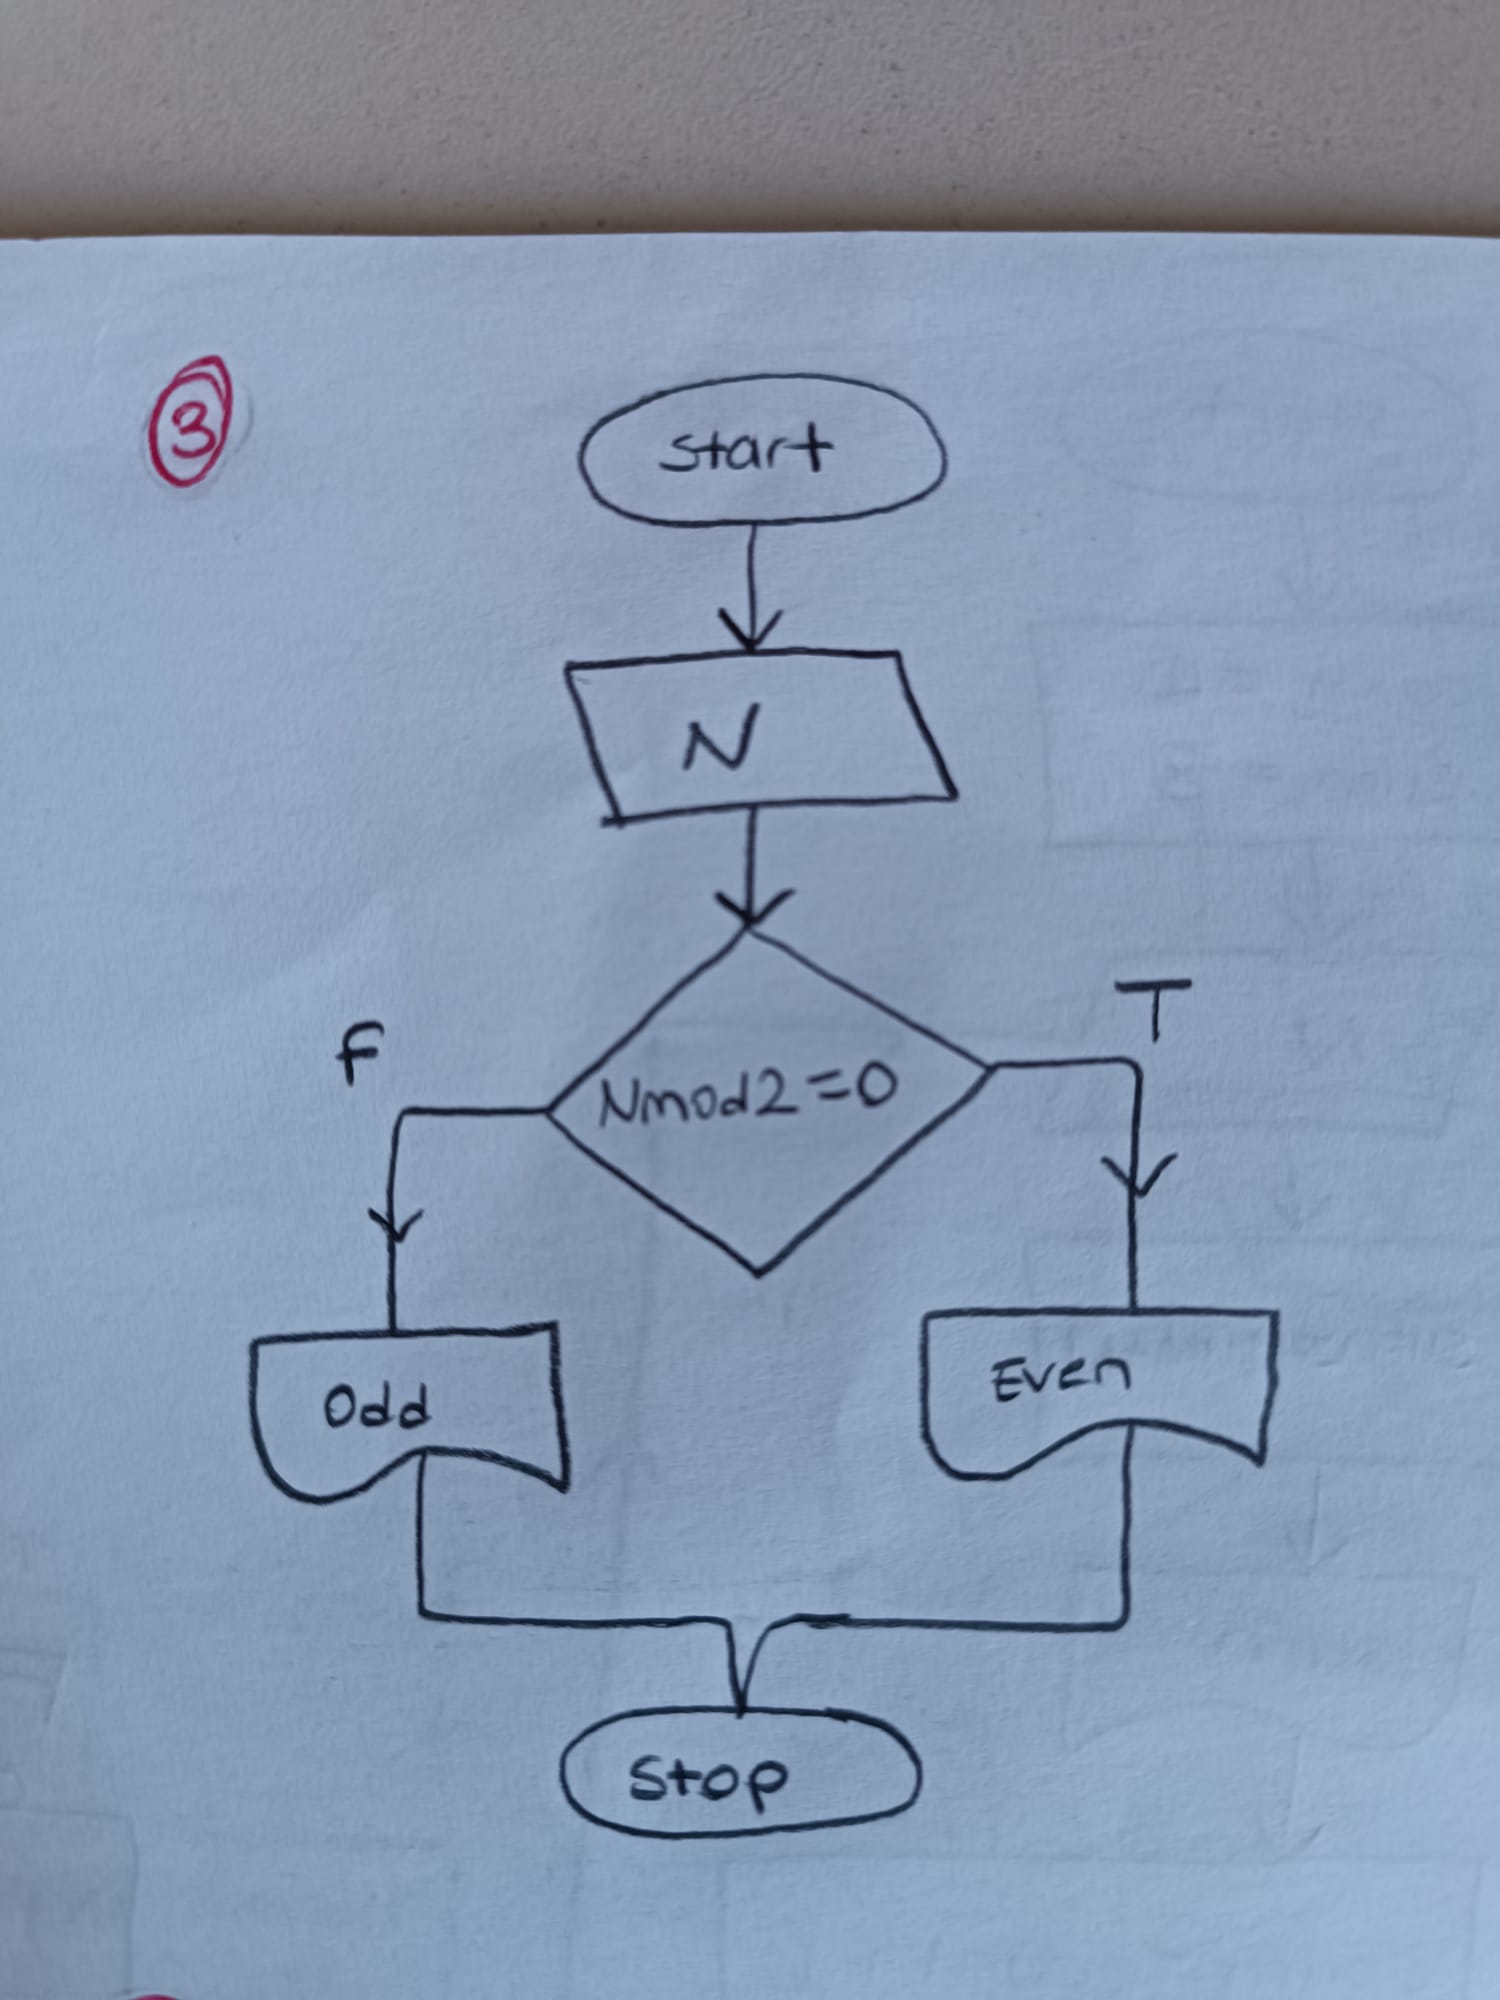 3
Start
N
F
T
Nmod2=0
Odd
Even
Stop